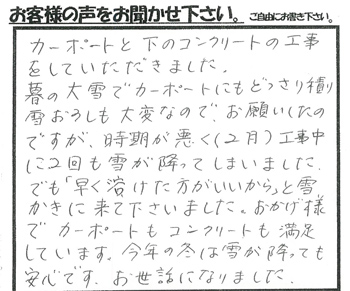 お客様の声をお聞かせ下さい。ご自由にお書き下さい。
カーポートと下のコンクリートの工事
をしていただきました。
暮の大雪でカーポートにもどっさり積り
雪おろしも大変なので、お願いしたの
ですが、時期が悪く(2月)工事中
に2回も雪が降ってしまいました。
でも「早く溶けた方がいいから」と雪
かきに来て下さいました。おかげ様
でカーポートもコンクリートも満足
しています。今年の冬は雪が降っても
安心です。お世話になりました。